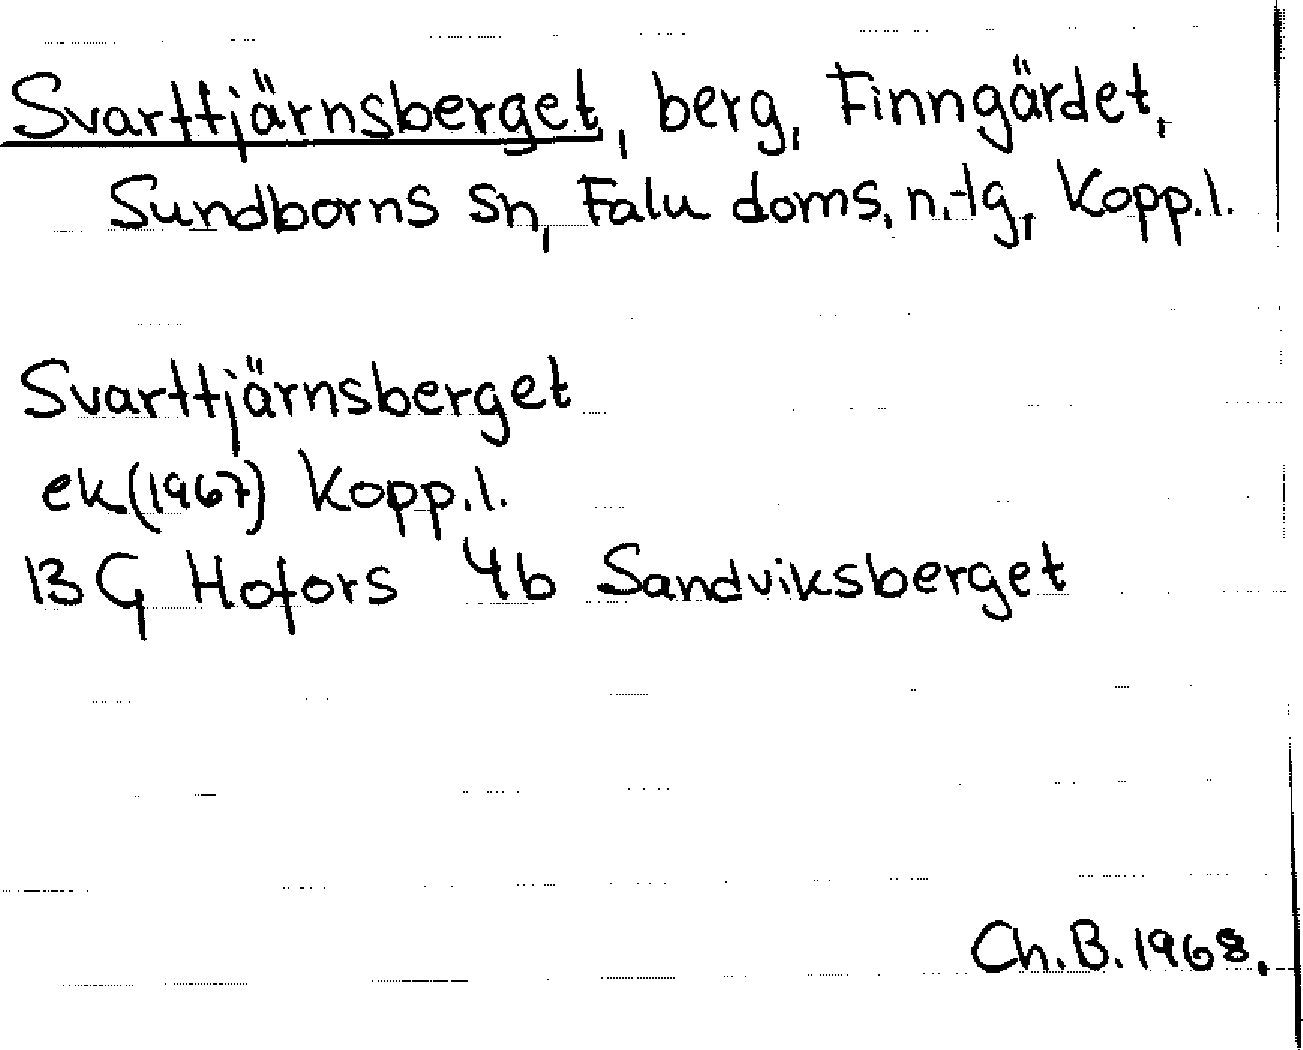 Svarttjärnsberget, berg, Finngärdet,
Sundborns sn, Falu doms, n. tg, Kopp. l.
Svarttjärnsberget
ek (1967) Kopp. l.
13 G Hofors 4b Sandviksberget
Ch. B. 1968.